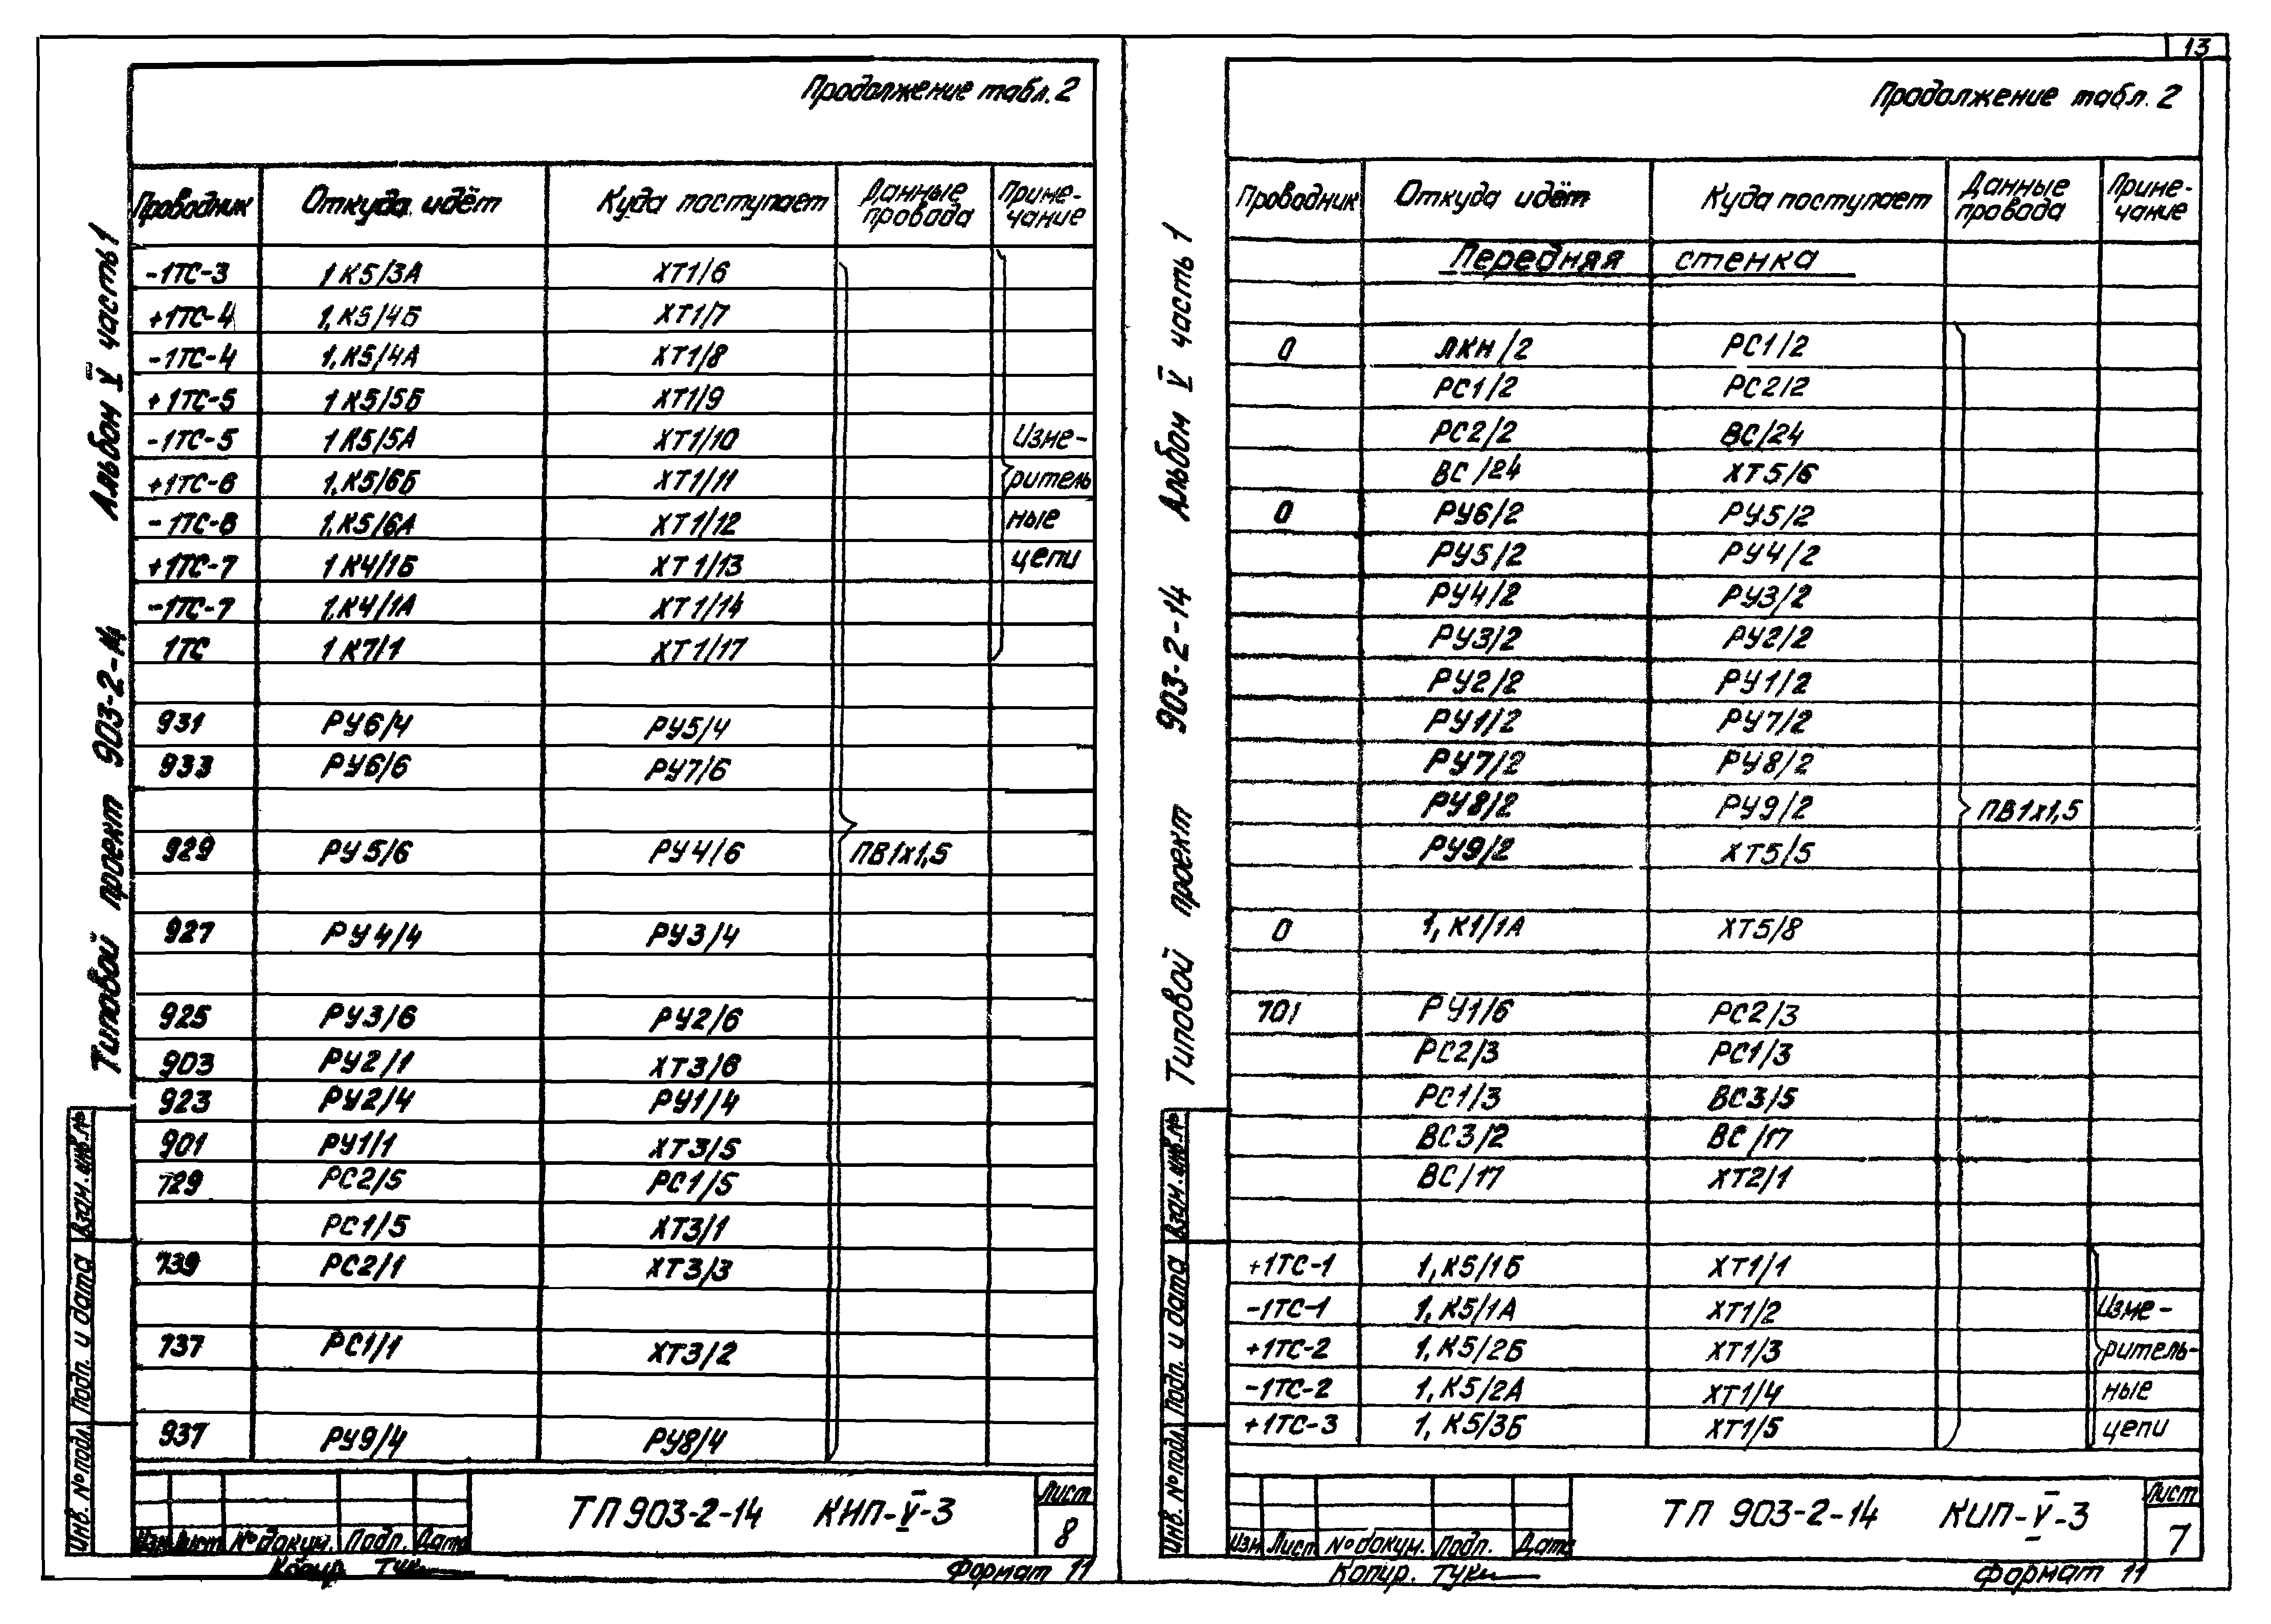 13
Продолжение табл. 2
Проводник Откуда идёт Куда поступает Данные провода Приме-чание
-1ТС-3 1К5/3А ХТ1/6
+1ТС-4 1,К5/4Б ХТ1/7
-1ТС-4 1,К5/4А ХТ1/8
+1ТС-5 1К5/5Б ХТ1/9
-1ТС-5 1К5/5А ХТ1/10 Изме-
+1ТС-6 1,К5/6Б ХТ1/11 ритель
-1ТС-6 1,К5/6А ХТ1/12 ные
+1ТС-7 1К4/1Б ХТ1/13 цепи
-1ТС-7 1,К4/1А ХТ1/14
1ТС 1К7/1 ХТ1/17
931 РУ6/4 РУ5/4
933 РУ6/6 РУ7/6
929 РУ5/6 РУ4/6 ПВ1х1,5
927 РУ4/4 РУ3/4
925 РУ3/6 РУ2/6
903 РУ2/1 ХТ3/6
923 РУ2/4 РУ1/4
901 РУ1/1 ХТ3/5
729 РС2/5 РС1/5
РС1/5 ХТ3/1
739 РС2/1 ХТ3/3
737 РС1/1 ХТ3/2
937 РУ9/4 РУ8/4
ТП 903-2-14 КИП-V-3
Лист
8
Изм Лист № докум. Подп. Дата
Копир. Тук
Формат 11
Типовой проект 903-2-14 Альбом V часть 1
Инв. № подл. Подп. и дата Взам. инв. №
Продолжение табл. 2
Проводник Откуда идёт Куда поступает Данные провода Приме-чание
Передняя стенка
0 ЛКН/2 РС1/2
РС1/2 РС2/2
РС2/2 ВС/24
ВС/24 ХТ5/6
0 РУ6/2 РУ5/2
РУ5/2 РУ4/2
РУ4/2 РУ3/2
РУ3/2 РУ2/2
РУ2/2 РУ1/2
РУ1/2 РУ7/2
РУ7/2 РУ8/2
РУ8/2 РУ9/2 ПВ1х1,5
РУ9/2 ХТ5/5
0 1,К1/1А ХТ5/8
701 РУ1/6 РС2/3
РС2/3 РС1/3
РС1/3 ВС3/5
ВС3/2 ВС/17
ВС/17 ХТ2/1
+1ТС-1 1,К5/1Б ХТ1/1
-1ТС-1 1,К5/1А ХТ1/2 Изме-
+1ТС-2 1,К5/2Б ХТ1/3 ритель-
-1ТС-2 1,К5/2А ХТ1/4 ные
+1ТС-3 1,К5/3Б ХТ1/5 цепи
ТП 903-2-14 КИП-V-3
Лист
7
Изм Лист № докум. Подп. Дата
Копир. Тук
Формат 11
Типовой проект 903-2-14 Альбом V часть 1
Инв. № подл. Подп. и дата Взам. инв. №